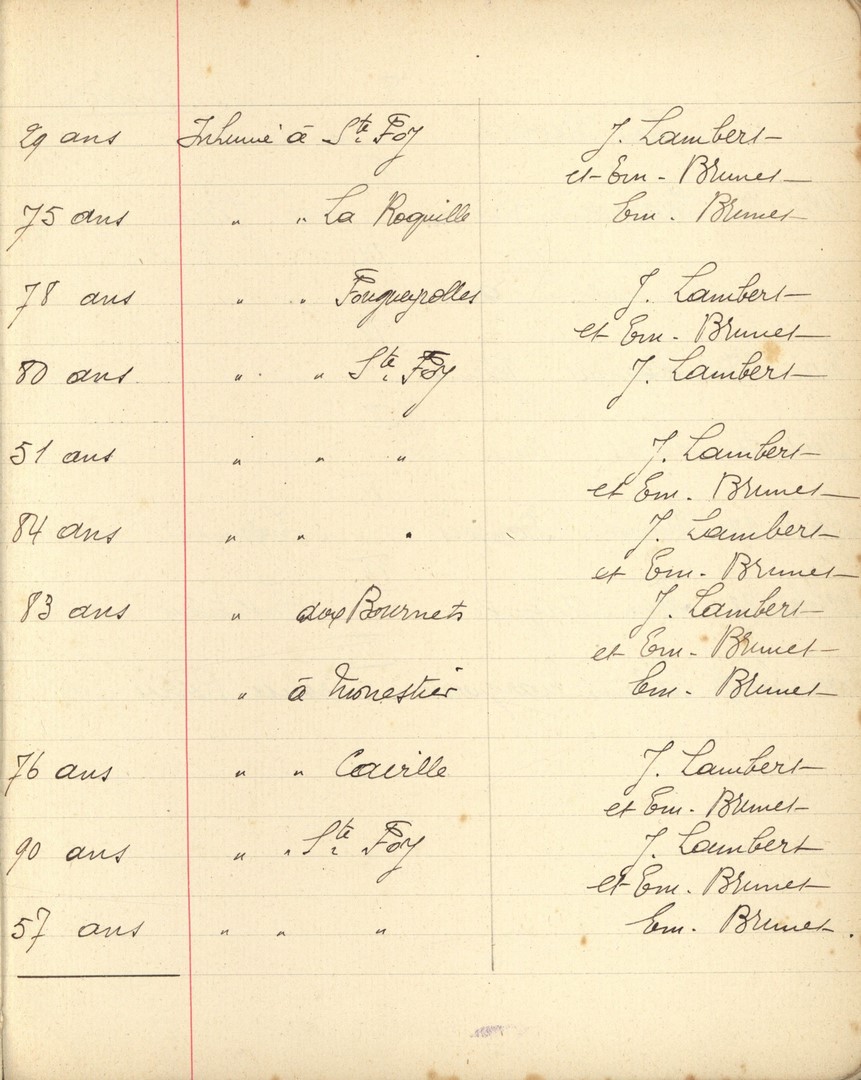 29 ans Inhumé à Ste Foy J. Lambert
et Em. Brunet
75 ans " " La Roquille Em. Brunet
78 ans " " Fougueyrolles J. Lambert
et Em. Brunet
80 ans " " Ste Foy J. Lambert
51 ans " " " J. Lambert
et Em. Brunet
84 ans " " " J. Lambert
et Em. Brunet
83 ans " aux Bournets J. Lambert
et Em. Brunet
" à Monestier Em. Brunet
76 ans " " Couille J. Lambert
et Em. Brunet
90 ans " " Ste Foy J. Lambert
et Em. Brunet
57 ans " " " Em. Brunet.